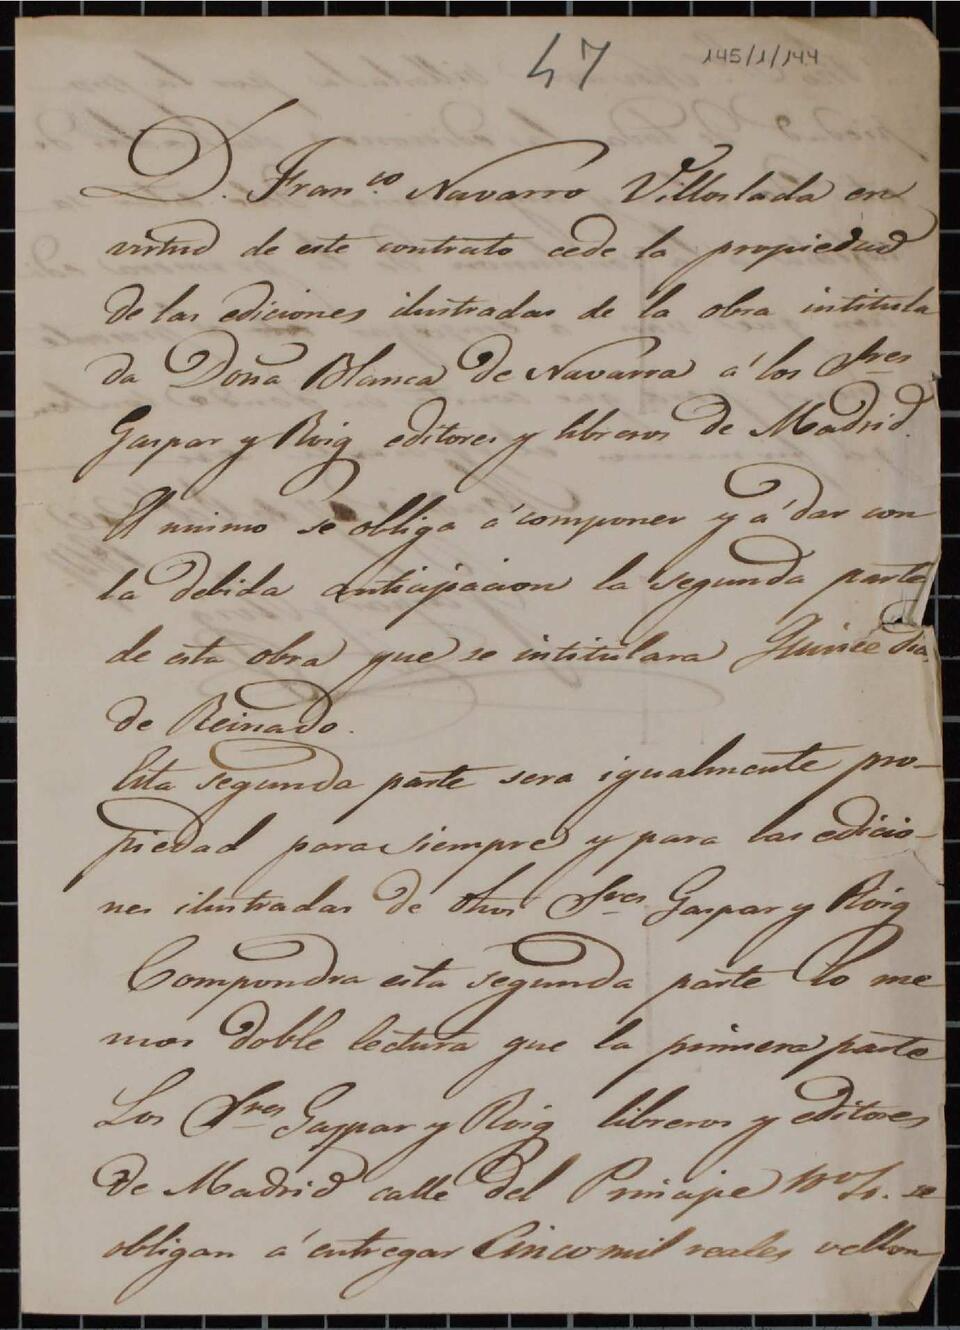 47 145/1/144
D. Franco Navarro Villoslada en
virtud de este contrato cede la propiedad
de las ediciones ilustradas de la obra intitula
da Doña Blanca de Navarra á los Sres
Gaspar y Roig editores y libreros de Madrid.
El mismo se obliga á componer y á dar con
la debida anticipacion la segunda parte
de esta obra que se intitulara Quince dias
de Reinado.
Esta segunda parte sera igualmente pro-
piedad para siempre y para las edicio-
nes ilustradas de dhos Sres Gaspar y Roig
Compondra esta segunda parte lo me
nos doble lectura que la primera parte
Los Sres Gaspar y Roig libreros y editores
de Madrid calle del Principe se
obligan á entregar Cinco mil reales vellon